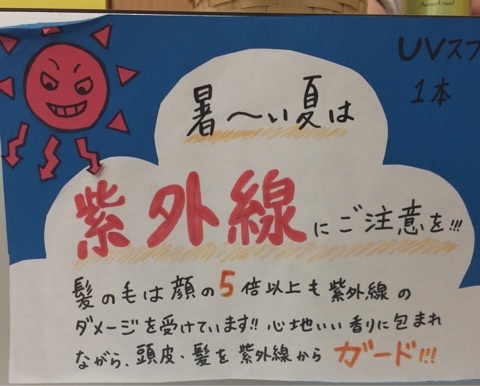 UVスプ
1本
暑〜い夏は
紫外線にご注意を!!!
髪の毛は顔の5倍以上も紫外線の
ダメージを受けています!! 心地いい香りに包まれ
ながら、頭皮、髪を紫外線からガード!!!